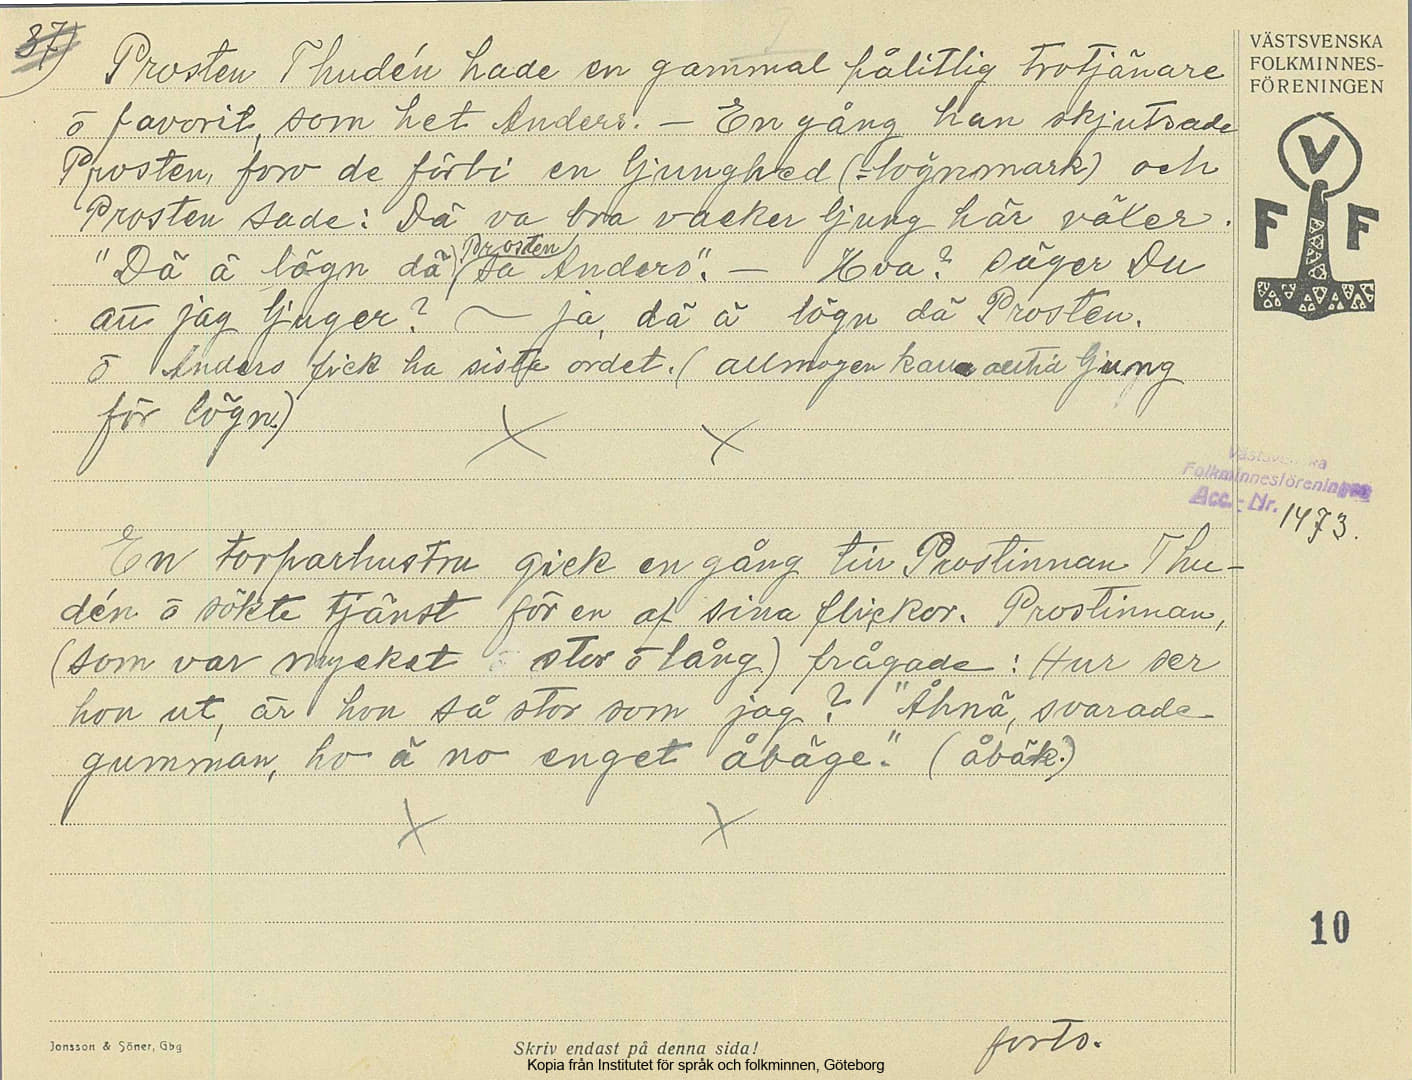 37)
Prosten Thudén hade en gammal pålitlig trotjänare
ō favorit, som het Anders. — En gång han skjutsade
Prosten, foro de förbi en ljunghed (= lögnmark) och
Prosten sade: Dä va bra vacker ljung här växer.
"Dä ä lögn dä Prosten sa Anders". — Hva? säger Du
att jag ljuger? — ja, dä ä lögn dä Prosten.
ō Anders fick ha sista ordet. (allmogen kallar alltid ljung
för lögn.)
En torparhustru gick en gång till Prostinnan Thu-
dén ō sökte tjänst för en af sina flickor. Prostinnan,
(som var mycket stor ō lång) frågade: Hur ser
hon ut, är hon så stor som jag? "Åhnä, svarade
gumman, ho ä no enget åbäge." (åbäk.)
forts.
VÄSTSVENSKA
FOLKMINNES-
FÖRENINGEN
V
F F
Västsvenska
Folkminnesföreningen
Acc.-Nr. 1473.
10
Jonsson & Söner, Gbg
Skriv endast på denna sida!
Kopia från Institutet för språk och folkminnen, Göteborg